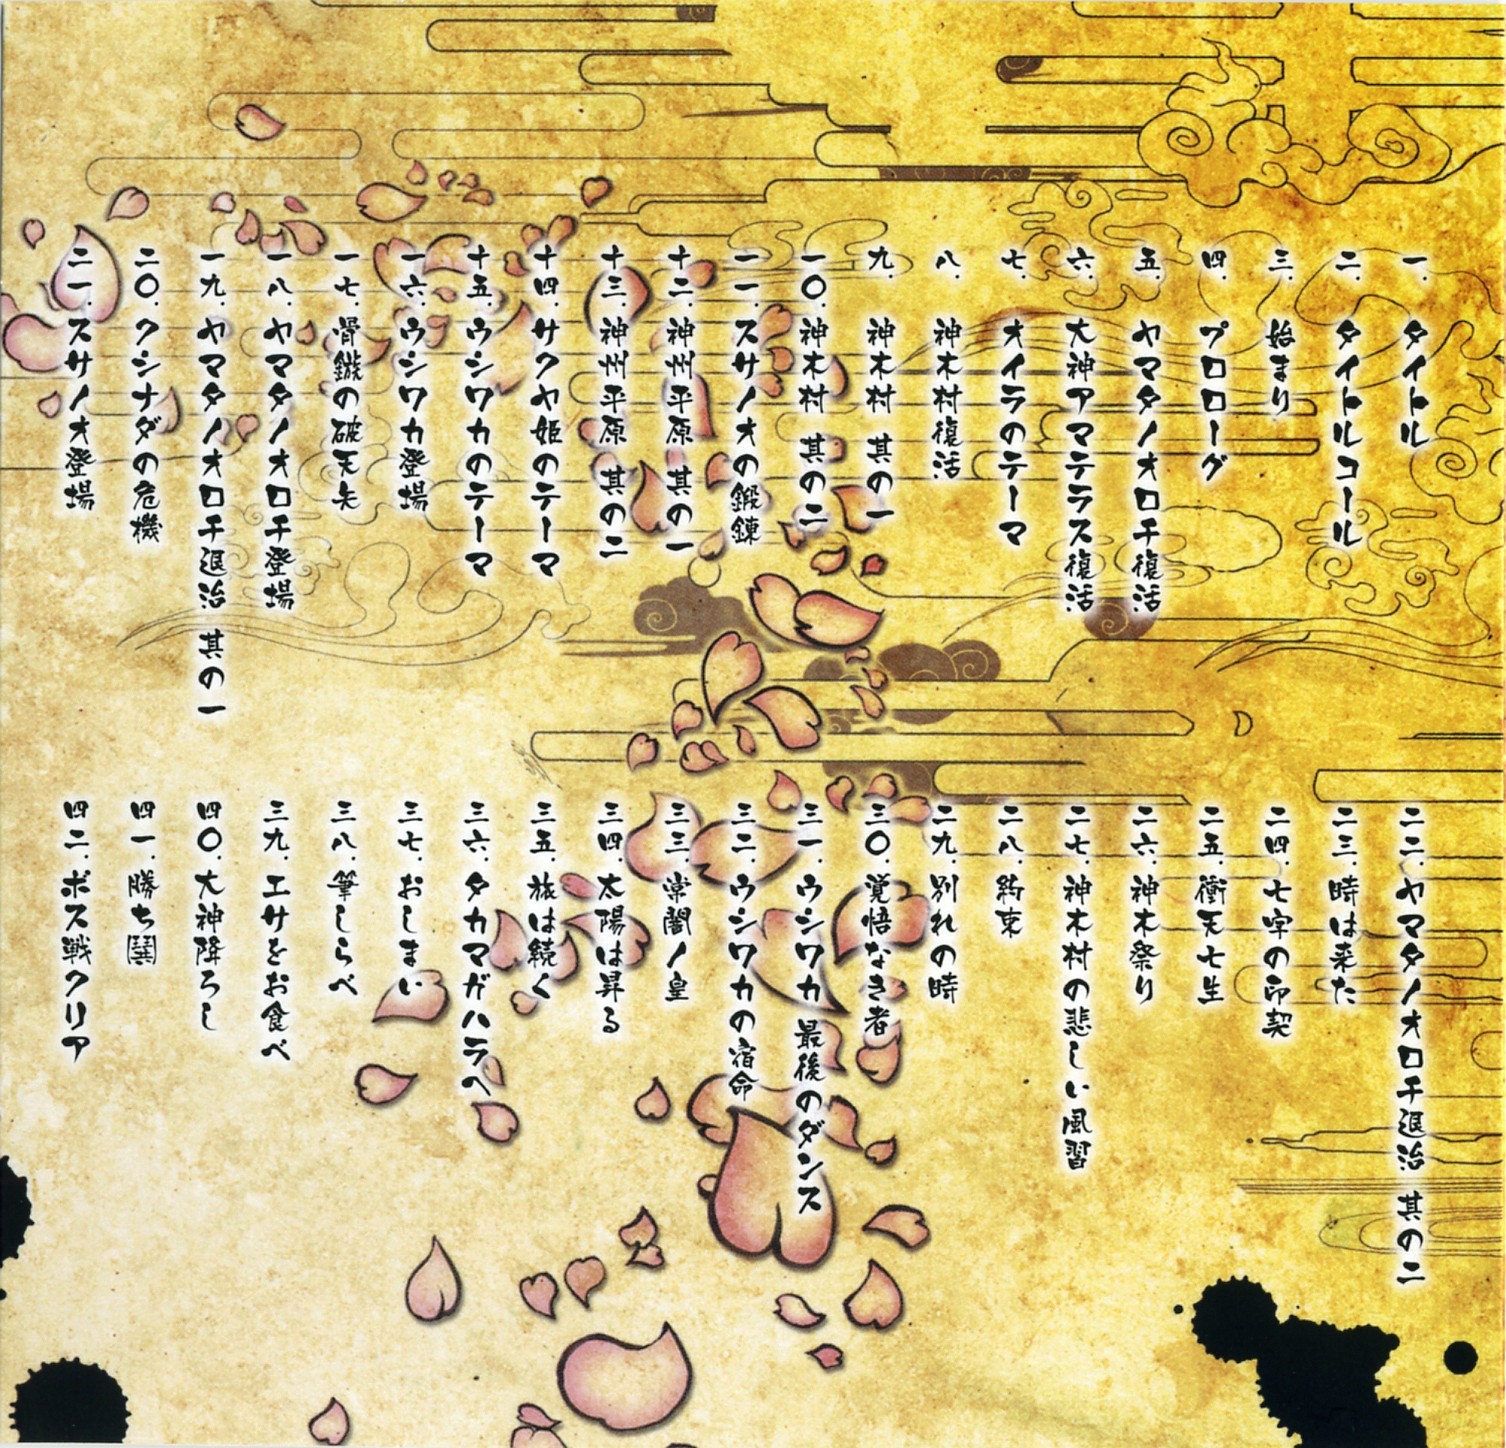 一. タイトル
二. タイトルコール
三. 始まり
四. プロローグ
五. ヤマタノオロチ復活
六. 大神アマテラス復活
七. オイラのテーマ
八. 神木村 復活
九. 神木村 其の一
一〇. 神木村 其の二
一一. スサノオの鍛錬
十二. 神州平原 其の一
十三. 神州平原 其の二
十四. サクヤ姫のテーマ
十五. ウシワカのテーマ
一六. ウシワカ登場
一七. 骨鏃の破天矢
一八. ヤマタノオロチ登場
一九. ヤマタノオロチ退治 其の一
二〇. クシナダの危機
二一. スサノオ登場
二二. ヤマタノオロチ退治 其の二
二三. 時は来た
二四. 七字の印契
二五. 衝天七生
二六. 神木祭り
二七. 神木村の悲しい風習
二八. 約束
二九. 別れの時
三〇. 覚悟なき者
三一. ウシワカ 最後のダンス
三二. ウシワカの宿命
三三. 常闇ノ皇
三四. 太陽は昇る
三五. 旅は続く
三六. タカマガハラへ
三七. おしまい
三八. 筆しらべ
三九. エサをお食べ
四〇. 大神降ろし
四一. 勝ち鬨
四二. ボス戦クリア